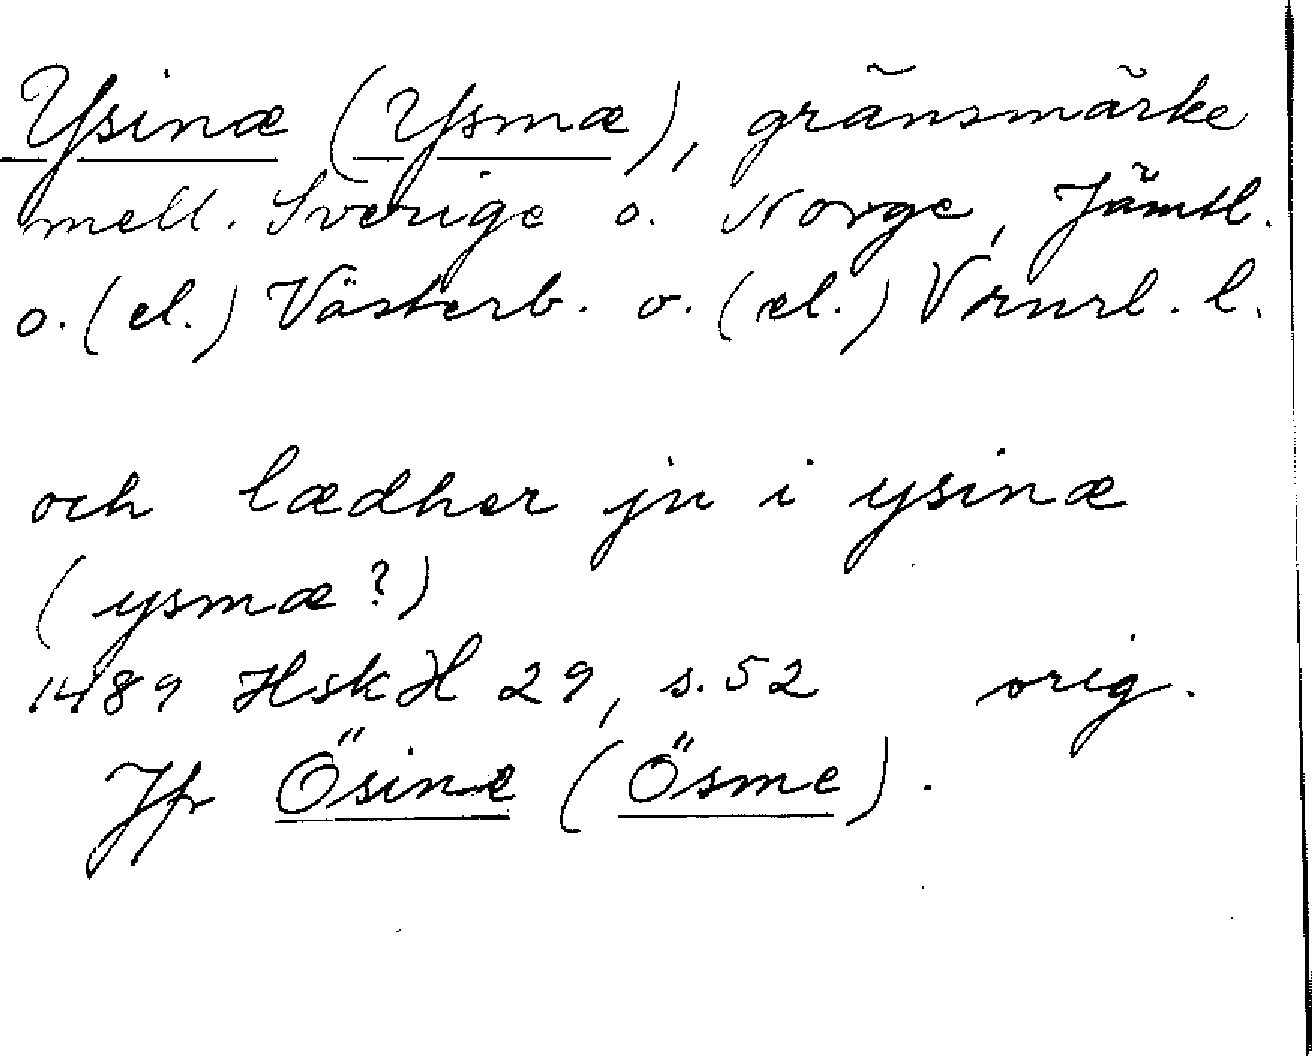 Ysinæ (Ysmæ), gränsmärke
mell. Sverige o. Norge, Jämtl.
o. (el.) Västerb. o. (el.) Vrnrl. l.
och lædher jn i ysinæ
(ysmæ?)
1489 HskH 29, s. 52 orig.
Jfr Ösine (Ösme).